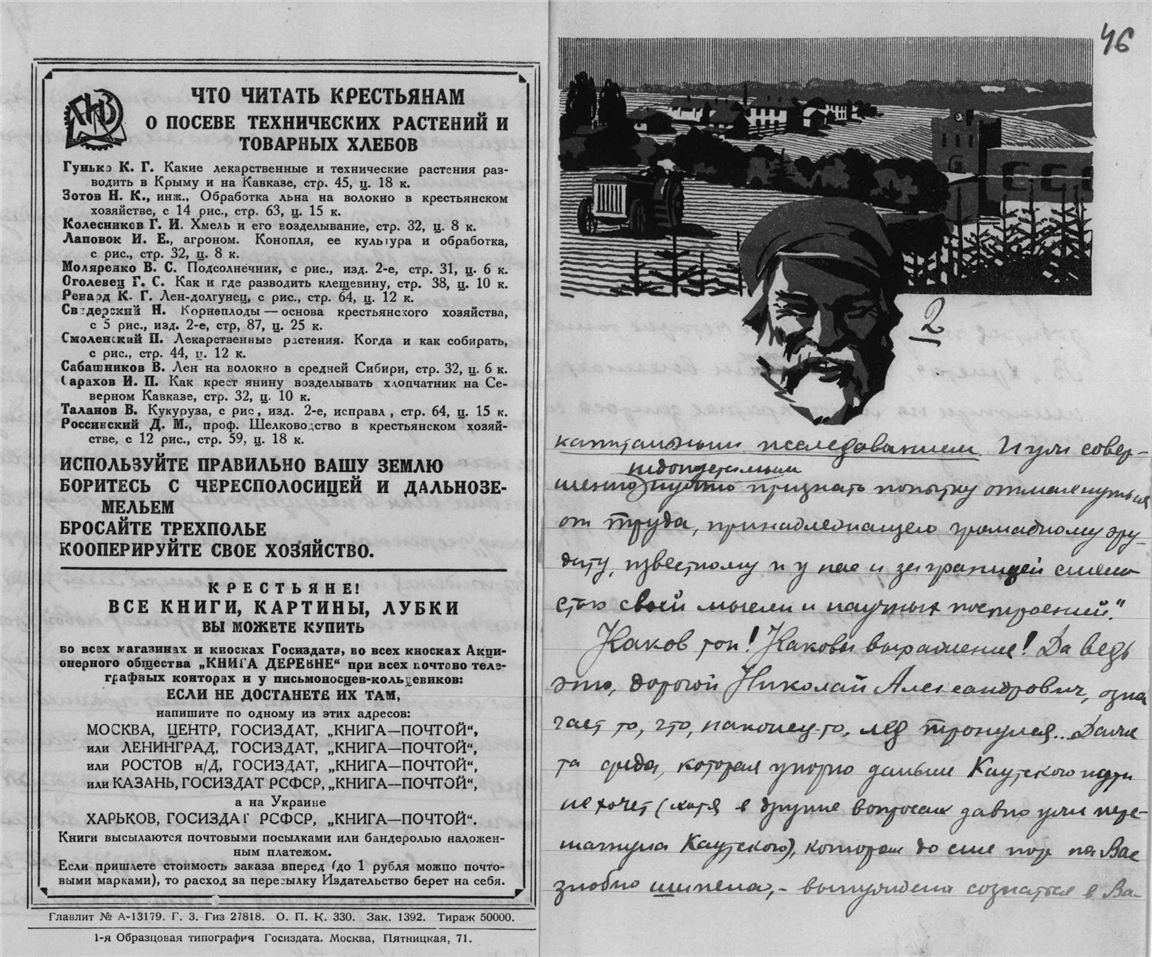 ГИЗ
ЧТО ЧИТАТЬ КРЕСТЬЯНАМ
О ПОСЕВЕ ТЕХНИЧЕСКИХ РАСТЕНИЙ И
ТОВАРНЫХ ХЛЕБОВ
Гунько К. Г. Какие лекарственные и технические растения раз-
водить в Крыму и на Кавказе, стр. 45, ц. 18 к.
Зотов Н. К., инж., Обработка льна на волокно в крестьянском
хозяйстве, с 14 рис., стр. 63, ц. 15 к.
Колесников Г. И. Хмель и его возделывание, стр. 32, ц. 8 к.
Лаповок И. Е., агроном. Конопля, ее культура и обработка,
с рис., стр. 32, ц. 8 к.
Моляренко В. С. Подсолнечник, с рис., изд. 2-е, стр. 31, ц. 6 к.
Оголевец Г. С. Как и где разводить клещевину, стр. 38, ц. 10 к.
Ренард К. Г. Лен-долгунец, с рис., стр. 64, ц. 12 к.
Свидерский Н. Корнеплоды — основа крестьянского хозяйства,
с 5 рис., изд. 2-е, стр, 87, ц. 25 к.
Смоленский П. Лекарственные растения. Когда и как собирать,
с рис., стр. 44, ц. 12 к.
Сабашников В. Лен на волокно в средней Сибири, стр. 32, ц. 6 к.
Сарахов И. П. Как крестянину возделывать хлопчатник на Се-
верном Кавказе, стр. 32, ц. 10 к.
Таланов В. Кукуруза, с рис, изд. 2-е, исправл, стр. 64, ц. 15 к.
Российский Д. М., проф. Шелководство в крестьянском хозяй-
стве, с 12 рис., стр. 59, ц. 18 к.
ИСПОЛЬЗУЙТЕ ПРАВИЛЬНО ВАШУ ЗЕМЛЮ
БОРИТЕСЬ С ЧЕРЕСПОЛОСИЦЕЙ И ДАЛЬНОЗЕ-
МЕЛЬЕМ
БРОСАЙТЕ ТРЕХПОЛЬЕ
КООПЕРИРУЙТЕ СВОЕ ХОЗЯЙСТВО.
КРЕСТЬЯНЕ!
ВСЕ КНИГИ, КАРТИНЫ, ЛУБКИ
ВЫ МОЖЕТЕ КУПИТЬ
во всех магазинах и киосках Госиздата, во всех киосках Акци-
онерного общества „КНИГА ДЕРЕВНЕ" при всех почтово теле-
графных конторах и у письмоносцев-кольцевиков:
ЕСЛИ НЕ ДОСТАНЕТЕ ИХ ТАМ,
напишите по одному из этих адресов:
МОСКВА, ЦЕНТР, ГОСИЗДАТ, „КНИГА—ПОЧТОЙ",
или ЛЕНИНГРАД, ГОСИЗДАТ, „КНИГА—ПОЧТОЙ",
или РОСТОВ н/Д, ГОСИЗДАТ, „КНИГА—ПОЧТОЙ",
или КАЗАНЬ, ГОСИЗДАТ РСФСР, „КНИГА—ПОЧТОЙ",
а на Украине
ХАРЬКОВ, ГОСИЗДАТ РСФСР, „КНИГА—ПОЧТОЙ".
Книги высылаются почтовыми посылками или бандеролью наложен-
ным платежом.
Если пришлете стоимость заказа вперед (до 1 рубля можно почто-
выми марками), то расход за пересылку Издательство берет на себя.
Главлит № А-13179. Г. З. Гиз 27818. О. П. К. 330. Зак. 1392. Тираж 50000.
1-я Образцовая типография Госиздата. Москва, Пятницкая, 71.
46
2
капитальным исследованием. И уж совер-
недопустимым
шенно признать попытку отмахнуться
от труда, принадлежащего громадному эру-
диту, известному и у нас и заграницей смело-
стью своей мысли и научных построений."
Каков тон! Каковы выражения! Да ведь
это, дорогой Николай Александрович, озна-
чает то, что, наконец-то, лед тронулся.. Даже
та среда, которая упорно дальше Каутского идти
не хочет (хотя в других вопросах давно уже пере-
шагнула Каутского), которая до сих пор на Вас
злобно шипела, - вынуждена сознаться в Ва-